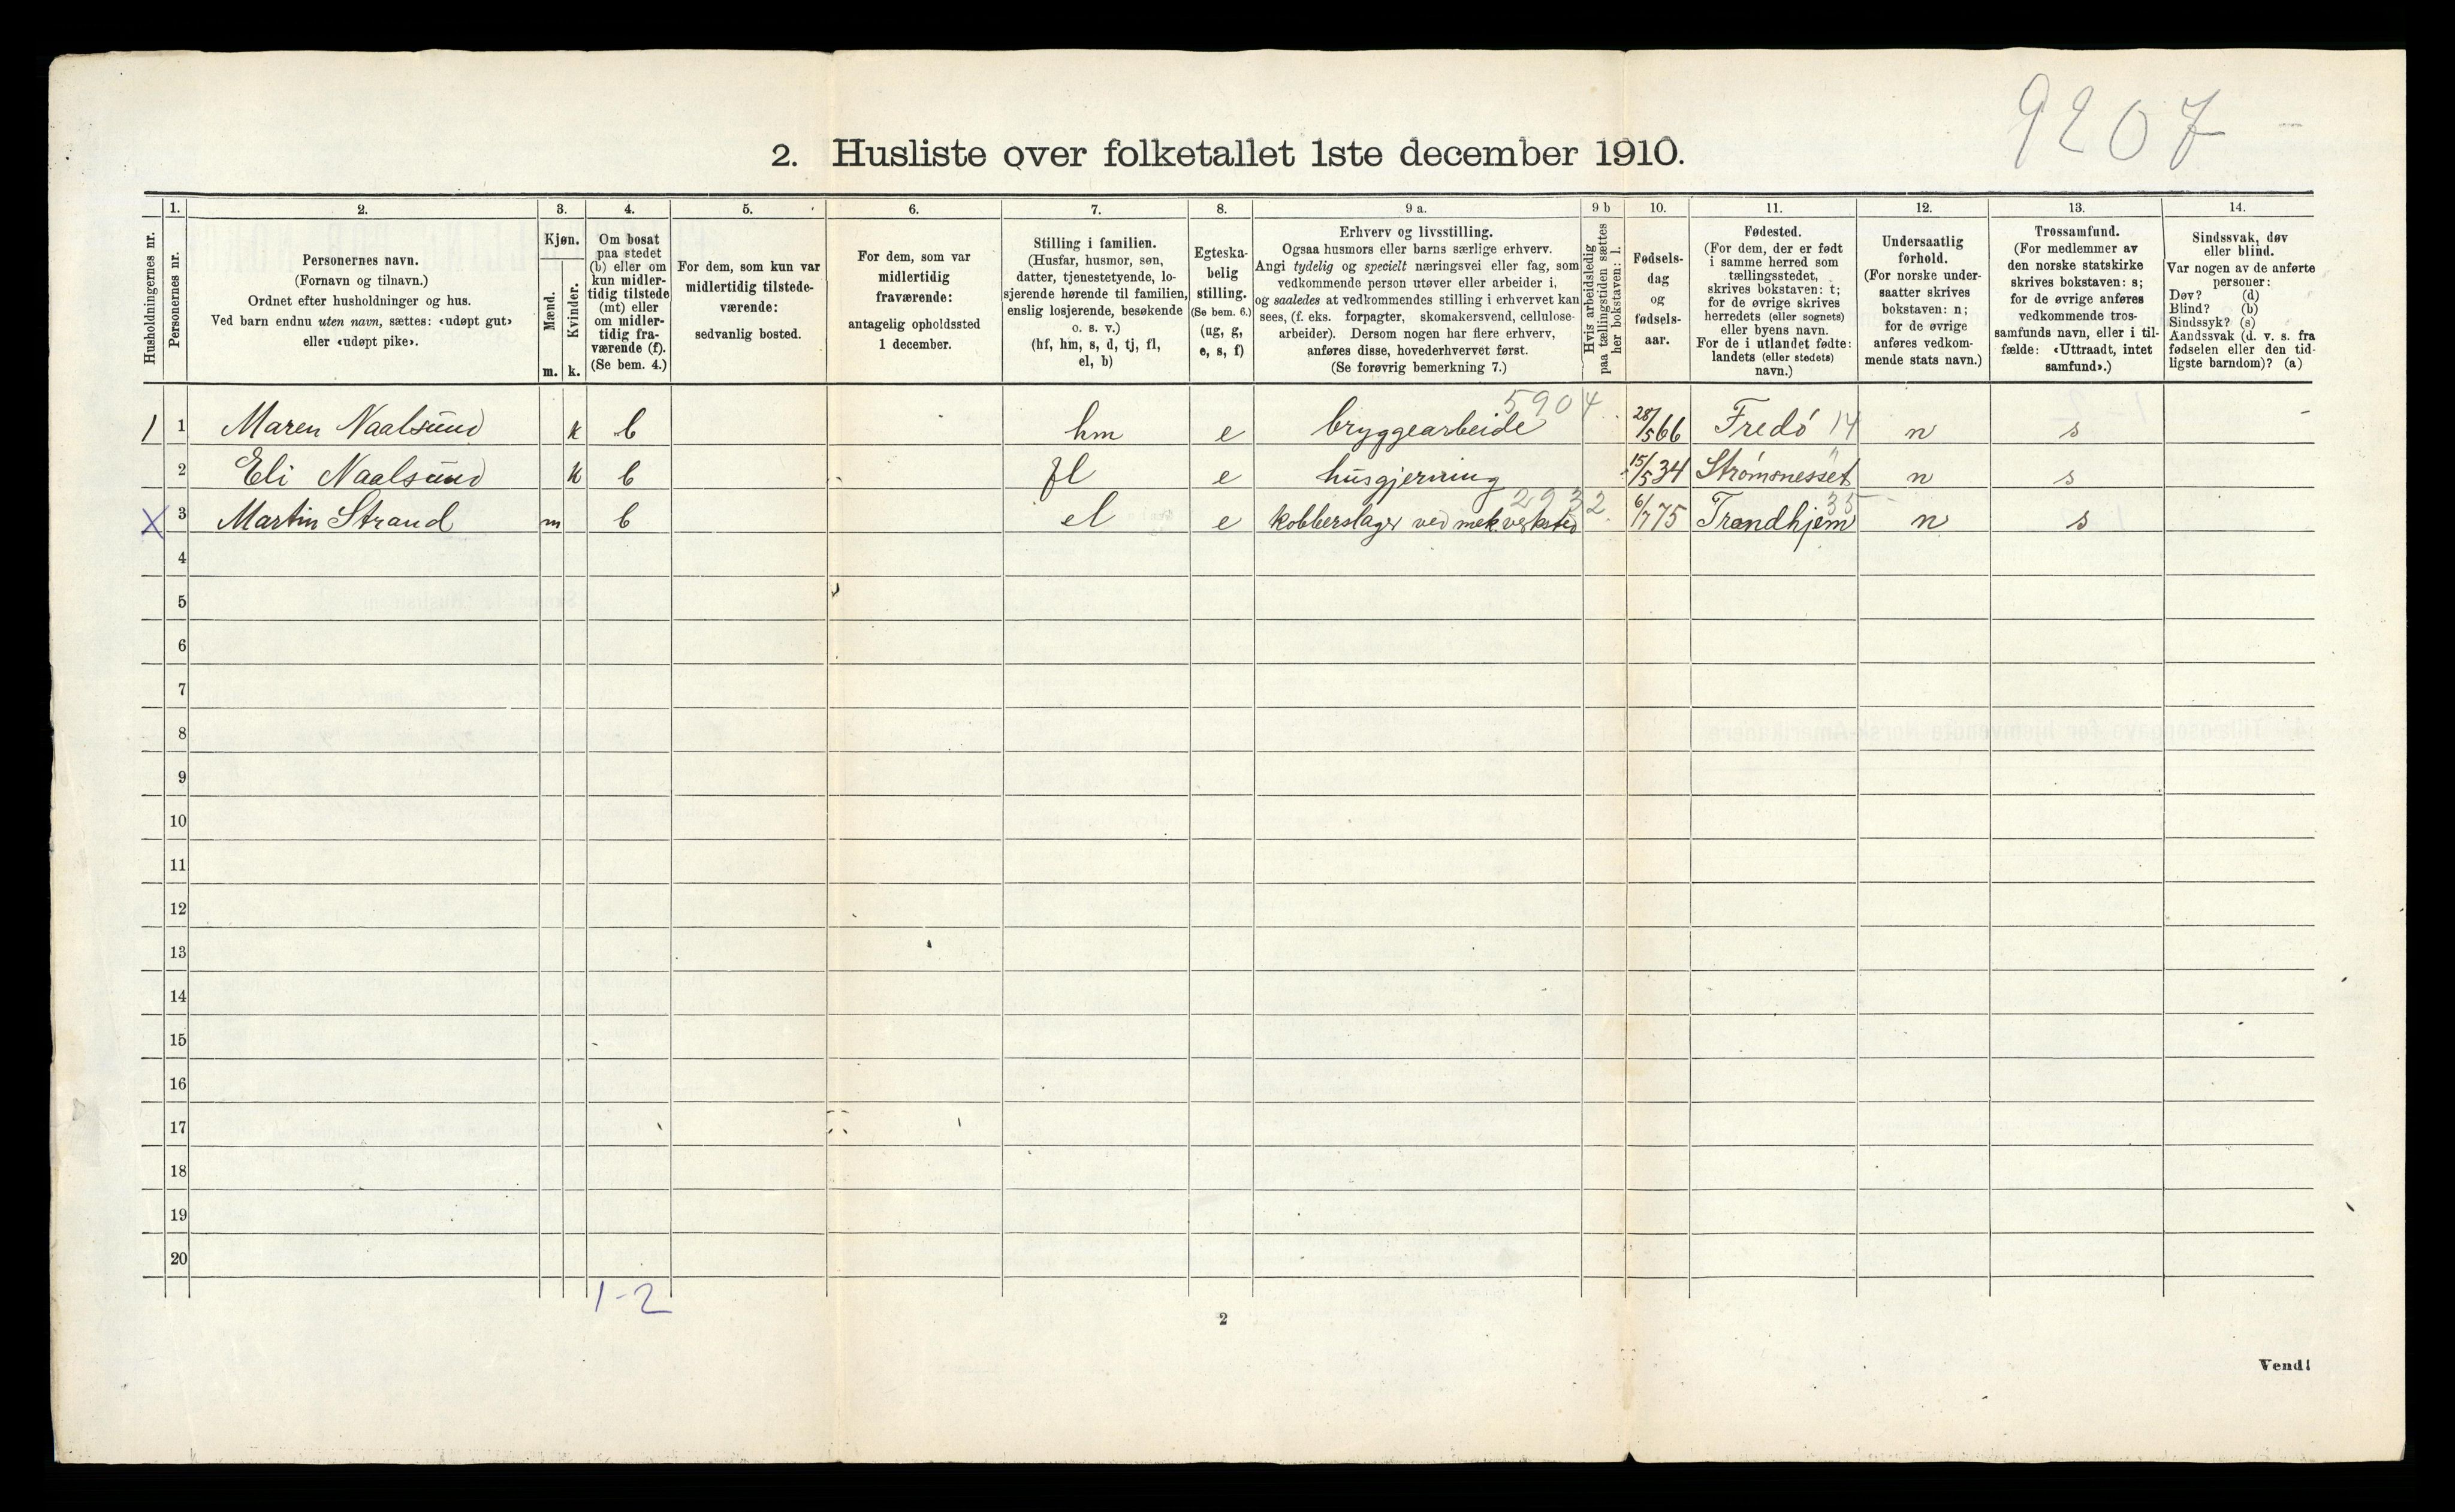 9207 -
2. Husliste over folketallet 1ste december 1910.
1. 2. 3. 4. 5. 6. 7. 8. 9 a. 9 b 10. 11. 12. 13. 14.
Husholdningernes nr.
Personernes nr.
Personernes navn.
(Fornavn og tilnavn.)
Ordnet efter husholdninger og hus.
Ved barn endnu uten navn, sættes: «udøpt gut»
eller «udøpt pike».
Kjøn.
Mænd.
Kvinder.
m. k.
Om bosat
paa stedet
(b) eller om
kun midler-
tidig tilstede
(mt) eller
om midler-
tidig fra-
værende (f).
(Se bem. 4.)
For dem, som kun var
midlertidig tilstede-
værende:
sedvanlig bosted.
For dem, som var
midlertidig
fraværende:
antagelig opholdssted
1 december.
Stilling i familien.
(Husfar, husmor, søn,
datter, tjenestetyende, lo-
sjerende hørende til familien,
enslig losjerende, besøkende
o. s. v.)
(hf, hm, s, d, tj, fl,
el, b)
Egteska-
belig
stilling.
(Se bem. 6.)
(ug, g,
e, s, f)
Erhverv og livsstilling.
Ogsaa husmors eller barns særlige erhverv.
Angi tydelig og specielt næringsvei eller fag, som
vedkommende person utøver eller arbeider i,
og saaledes at vedkommendes stilling i erhvervet kan
sees, (f. eks. forpagter, skomakersvend, cellulose-
arbeider). Dersom nogen har flere erhverv,
anføres disse, hovederhvervet først.
(Se forøvrig bemerkning 7.)
Hvis arbeidsledig
paa tællingstiden sættes
her bokstaven: l.
Fødsels-
dag
og
fødsels-
aar.
Fødested.
(For dem, der er født
i samme herred som
tællingsstedet,
skrives bokstaven: t;
for de øvrige skrives
herredets (eller sognets)
eller byens navn.
For de i utlandet fødte:
landets (eller stedets)
navn.)
Undersaatlig
forhold.
(For norske under-
saatter skrives
bokstaven: n;
for de øvrige
anføres vedkom-
mende stats navn.)
Trossamfund.
(For medlemmer av
den norske statskirke
skrives bokstaven: s;
for de øvrige anføres
vedkommende tros-
samfunds navn, eller i til-
fælde: «Uttraadt, intet
samfund».)
Sindssvak, døv
eller blind.
Var nogen av de anførte
personer:
Døv? (d)
Blind? (b)
Sindssyk? (s)
Aandssvak (d. v. s. fra
fødselen eller den tid-
ligste barndom)? (a)
5904
1 1 Maren Naalsund k b hm e bryggearbeide 28/5 66 Fredö 14 n s -
2 Eli Naalsund k b fl e husgjerning 15/5 34 Strömsnesset " n s
2932 35
X 3 Martin Strand m b el e kobberslager ved mek. verksted 6/7 75 Trondhjem n s
4
5
6
7
8
9
10
11
12
13
14
15
16
17
18
19
20
1-2
2
Vend!